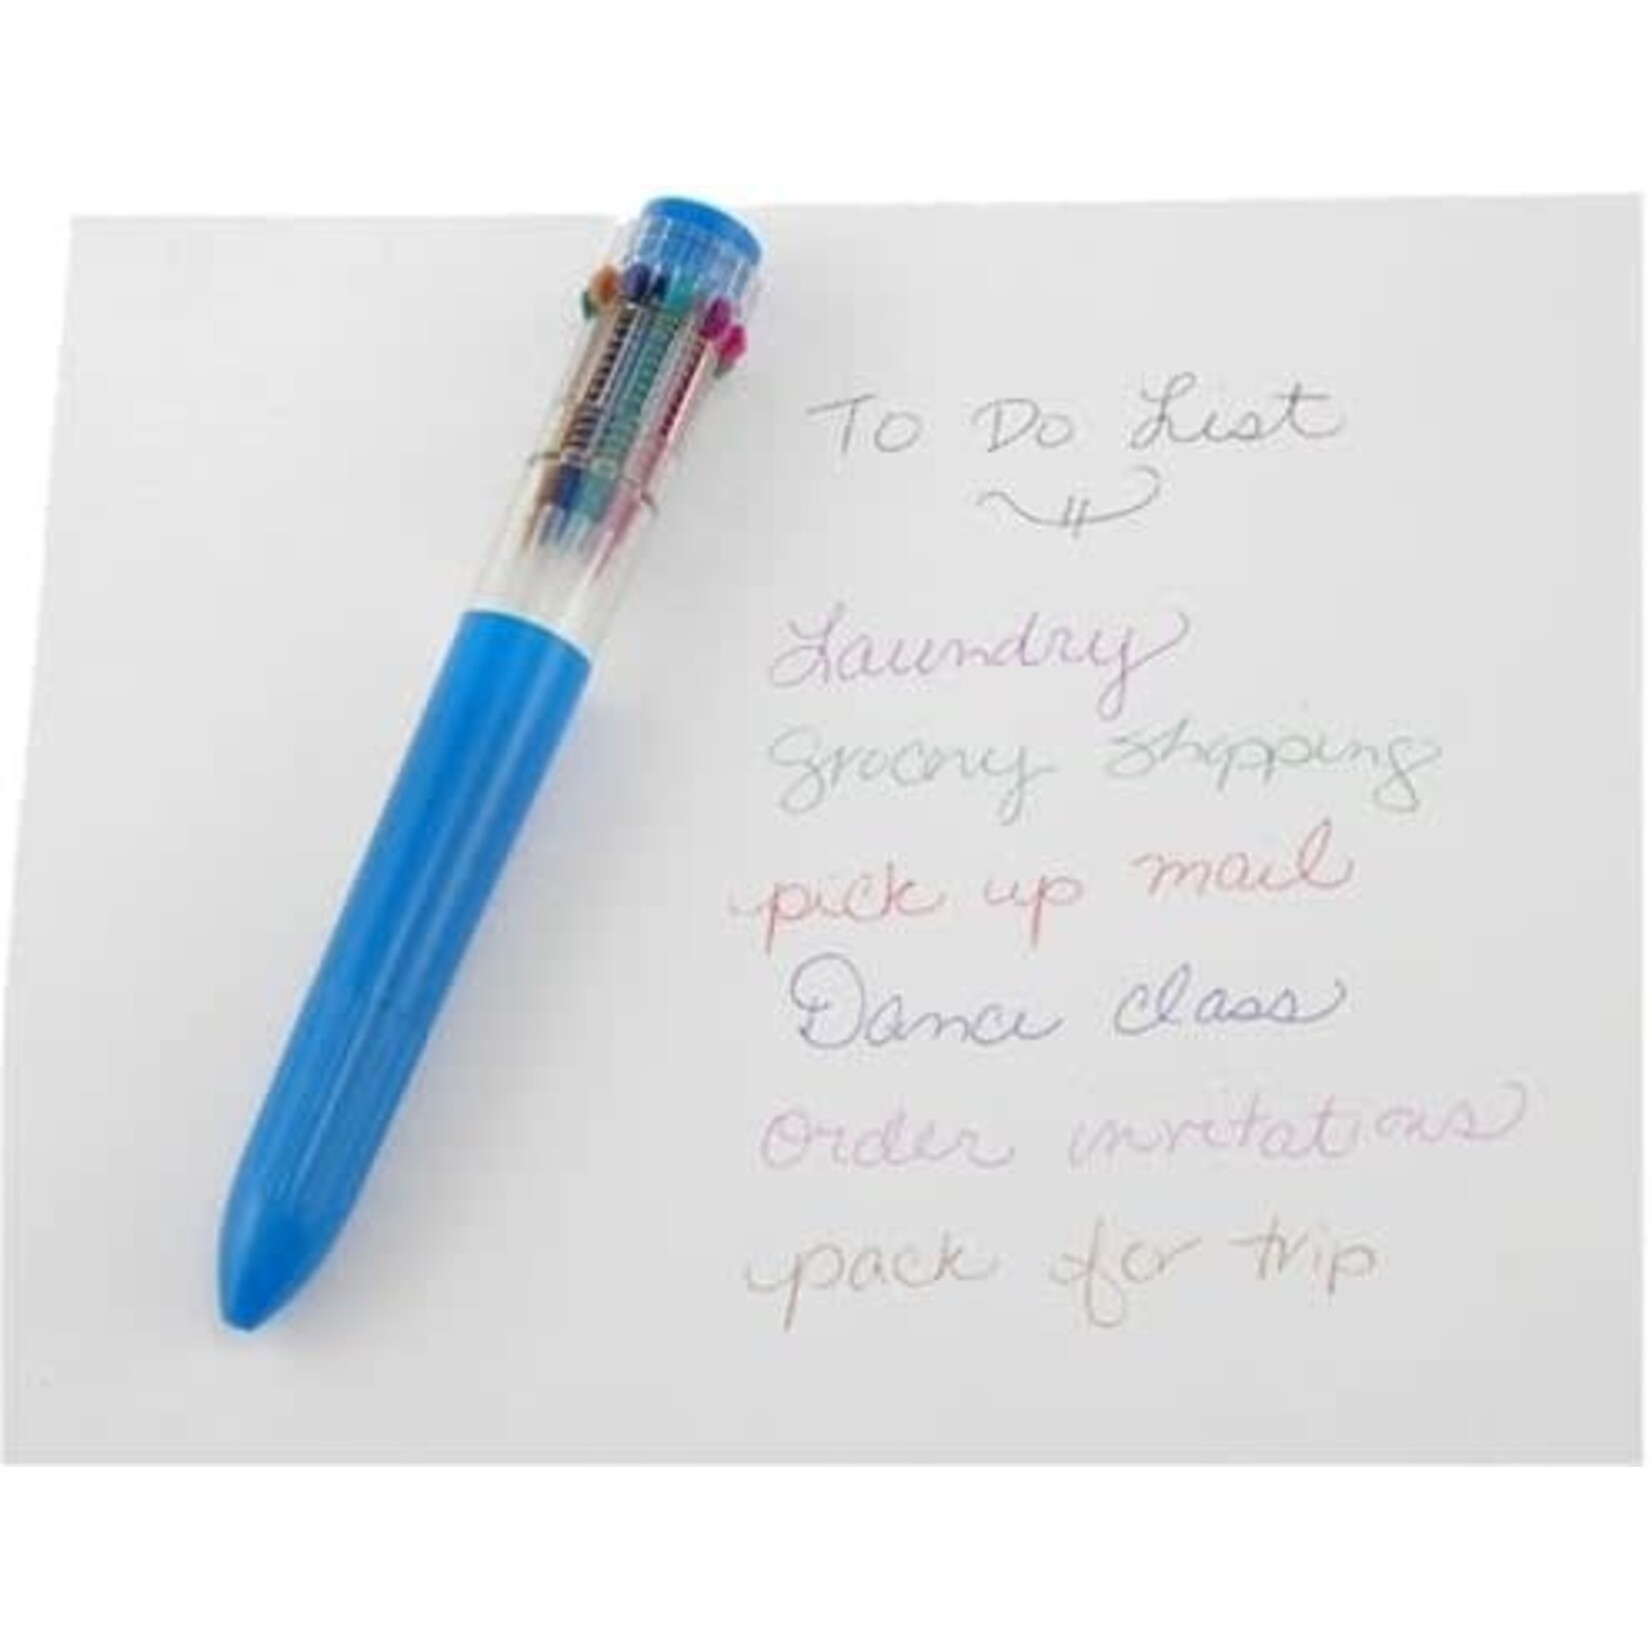 To Do List
Laundry
Grocery shopping
pick up mail
Dance class
Order invitations
pack for trip